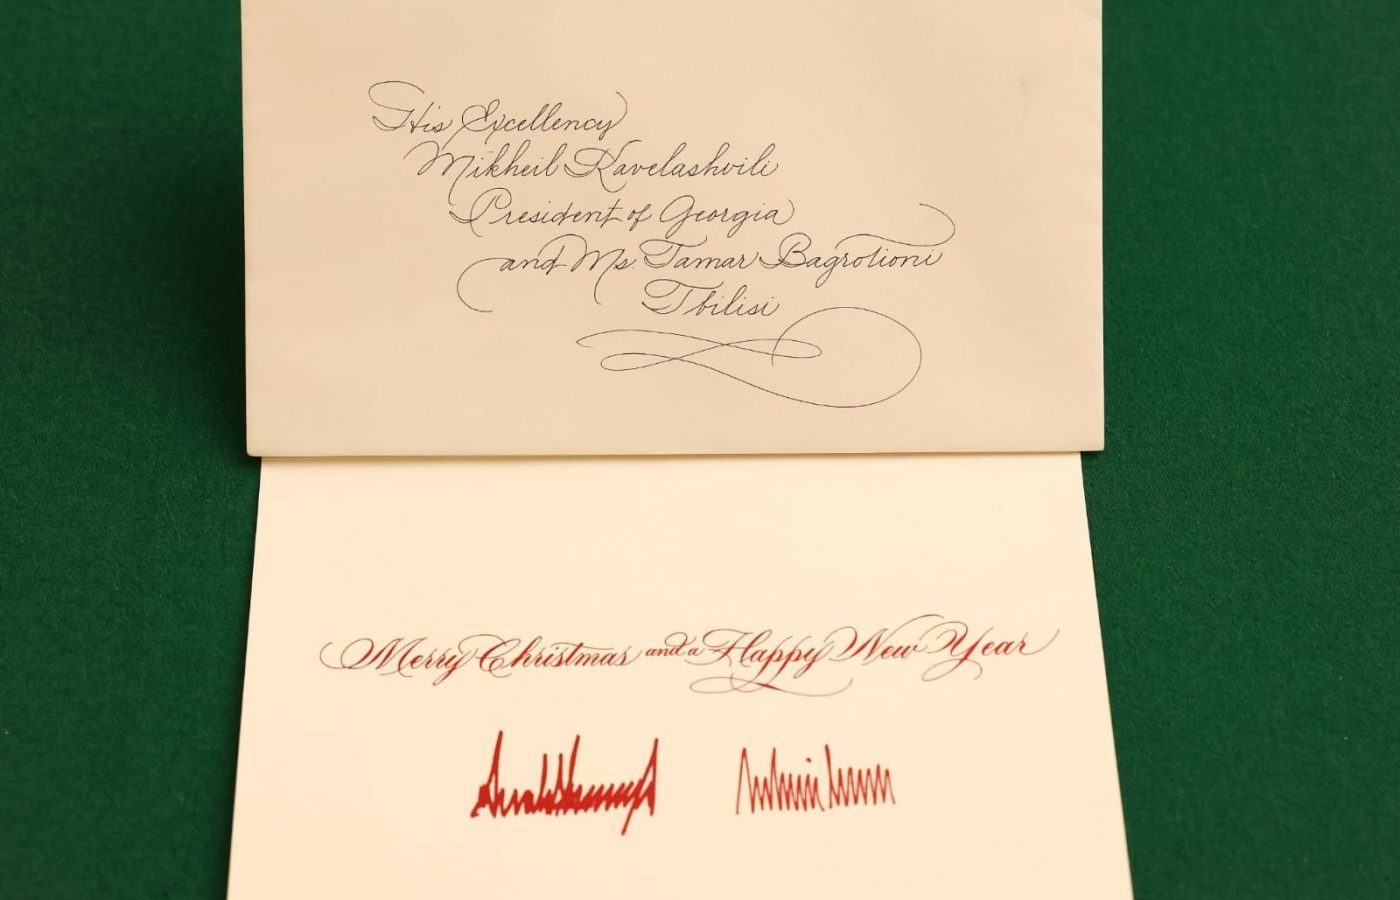 His Excellency
Mikheil Kavelashvili
President of Georgia
and Ms. Tamar Bagrotioni
Tbilisi
Merry Christmas and a Happy New Year